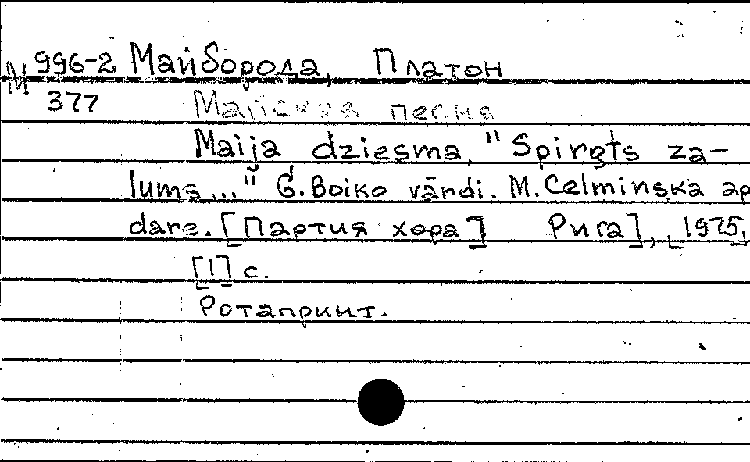 М 996-2 Майборода, Платон
377 Майская песня
Maija dziesma, "Spirgts za-
lums..." G. Boiko vārdi. M. Celminska ap
dare. [Партия хора] Рига], [1975,
[1] с.
Ротапринт.